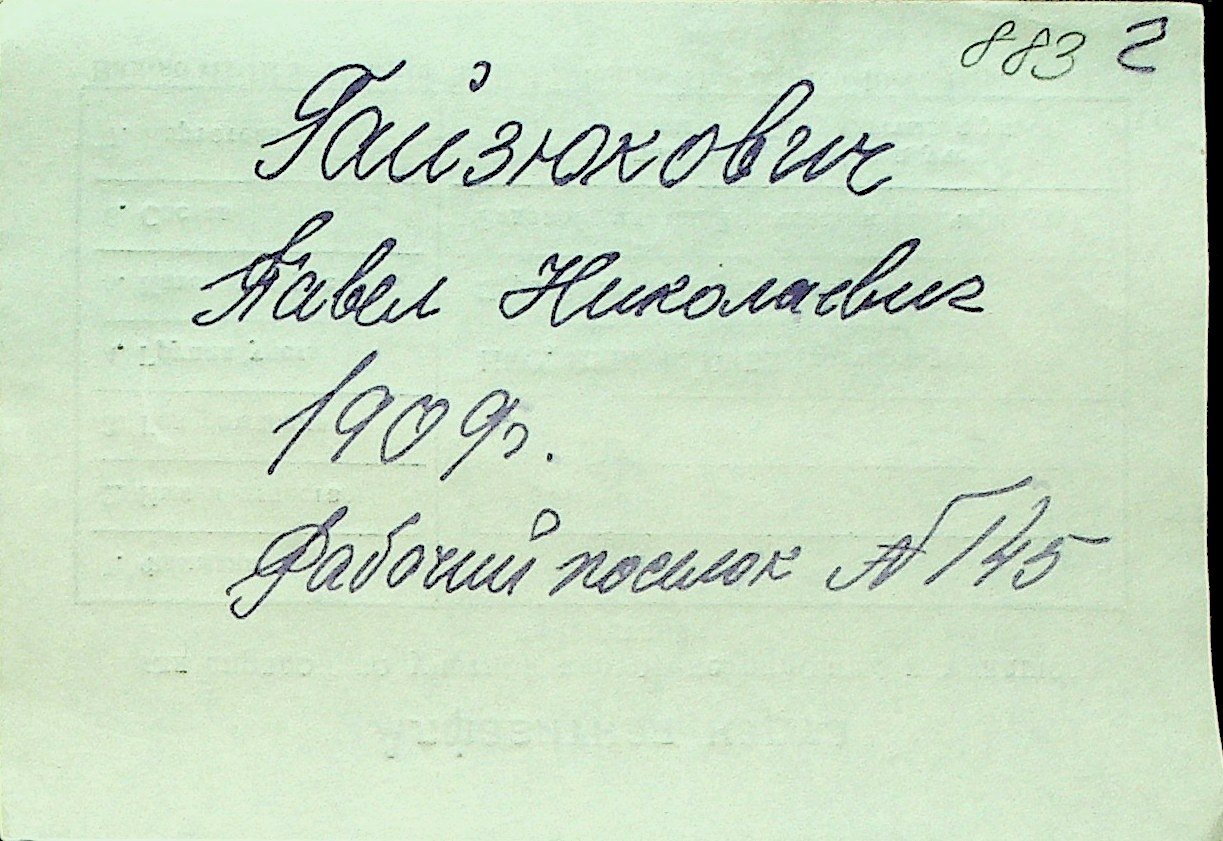 883 Г
Гайзюкович
Павел Николаевич
1909 г.
Рабочий поселок № 145